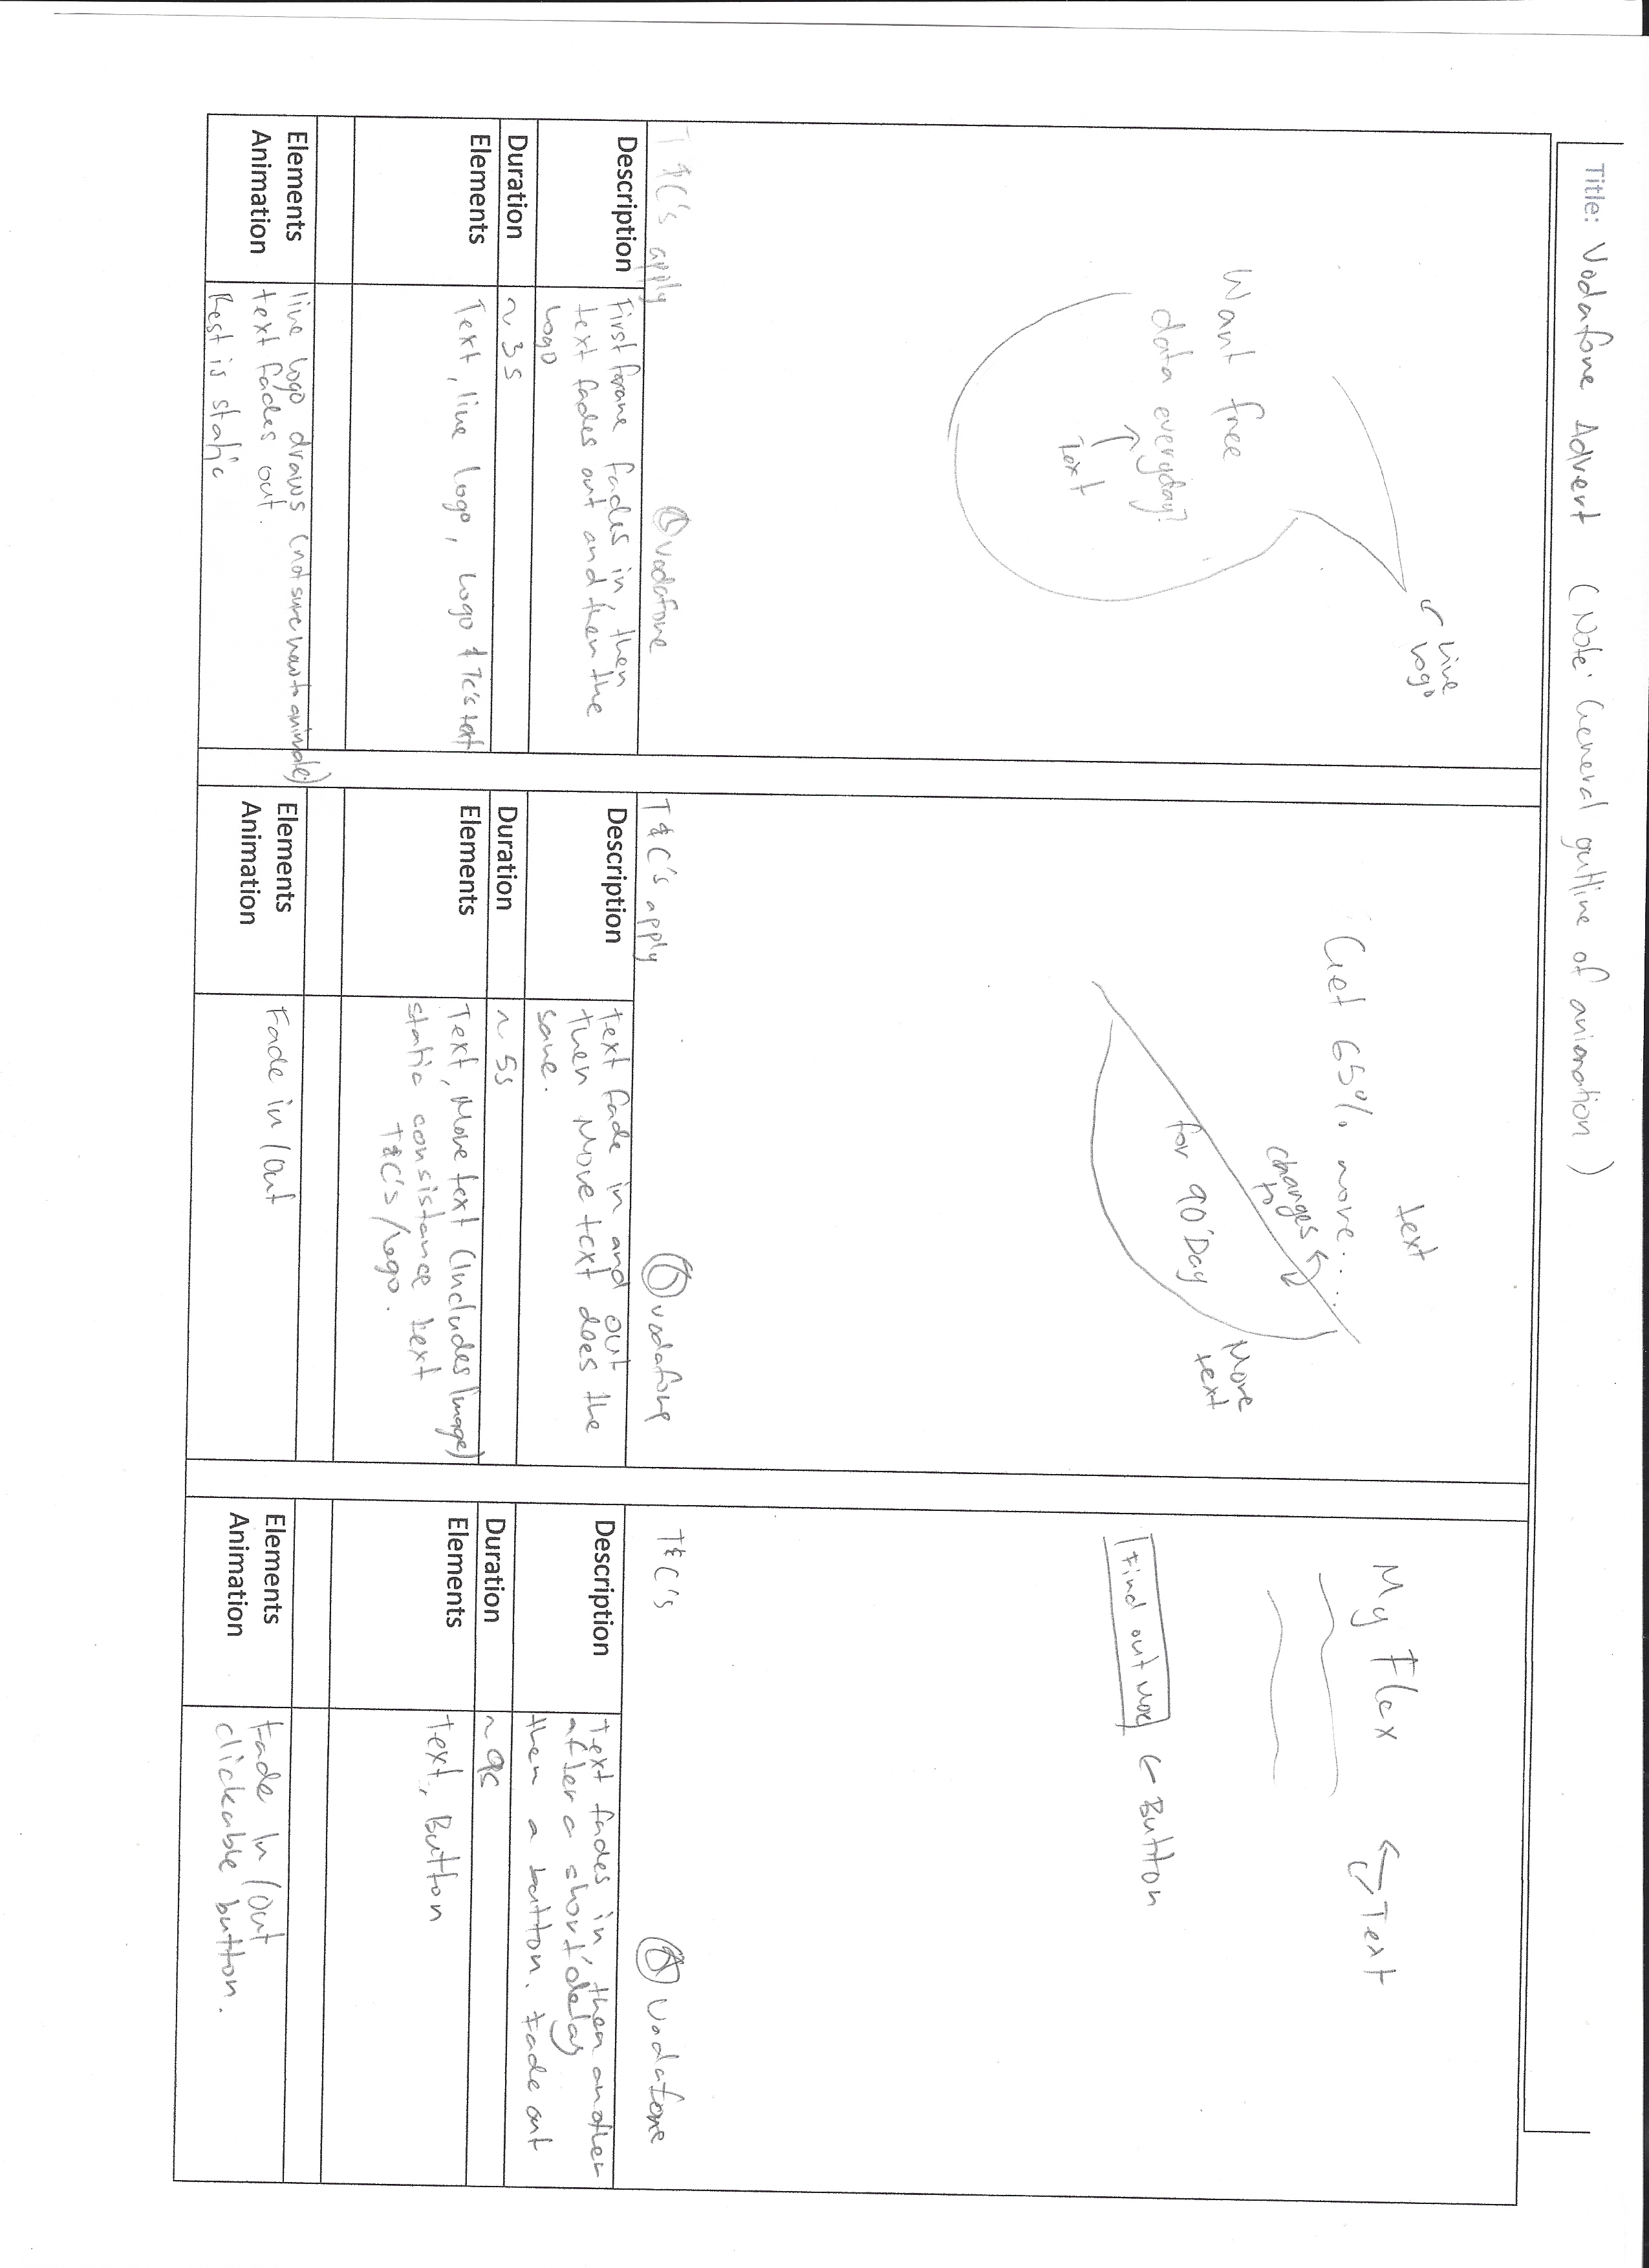 Title: Vodafone Advert (Note: General outline of animation)
Live
Logo
Want free
data everyday?
Text
T&C's apply
Vodafone
Description
First forame fades in, then
text fades out and then the
Logo
Duration
~ 3s
Elements
Text, line Logo, Logo & Tc's text
Elements
Animation
line logo draws (not sure how to animate)
text fades out.
Rest is static
text
Get 65% more....
changes
to
for 90 Day
More
text
T&C's apply
Vodafone
Description
text fade in and out
then More text does the
same.
Duration
~ 5s
Elements
Text, More text (Includes Image)
static consistance text
T&C's/Logo.
Elements
Animation
Fade in/Out
My Flex
Text
Find out More
Button
T&C's
Vodafone
Description
Text fades in, then another
after a short delay
then a button. fade out
Duration
Elements
Text, Button
Elements
Animation
Fade In/Out
clickable button.